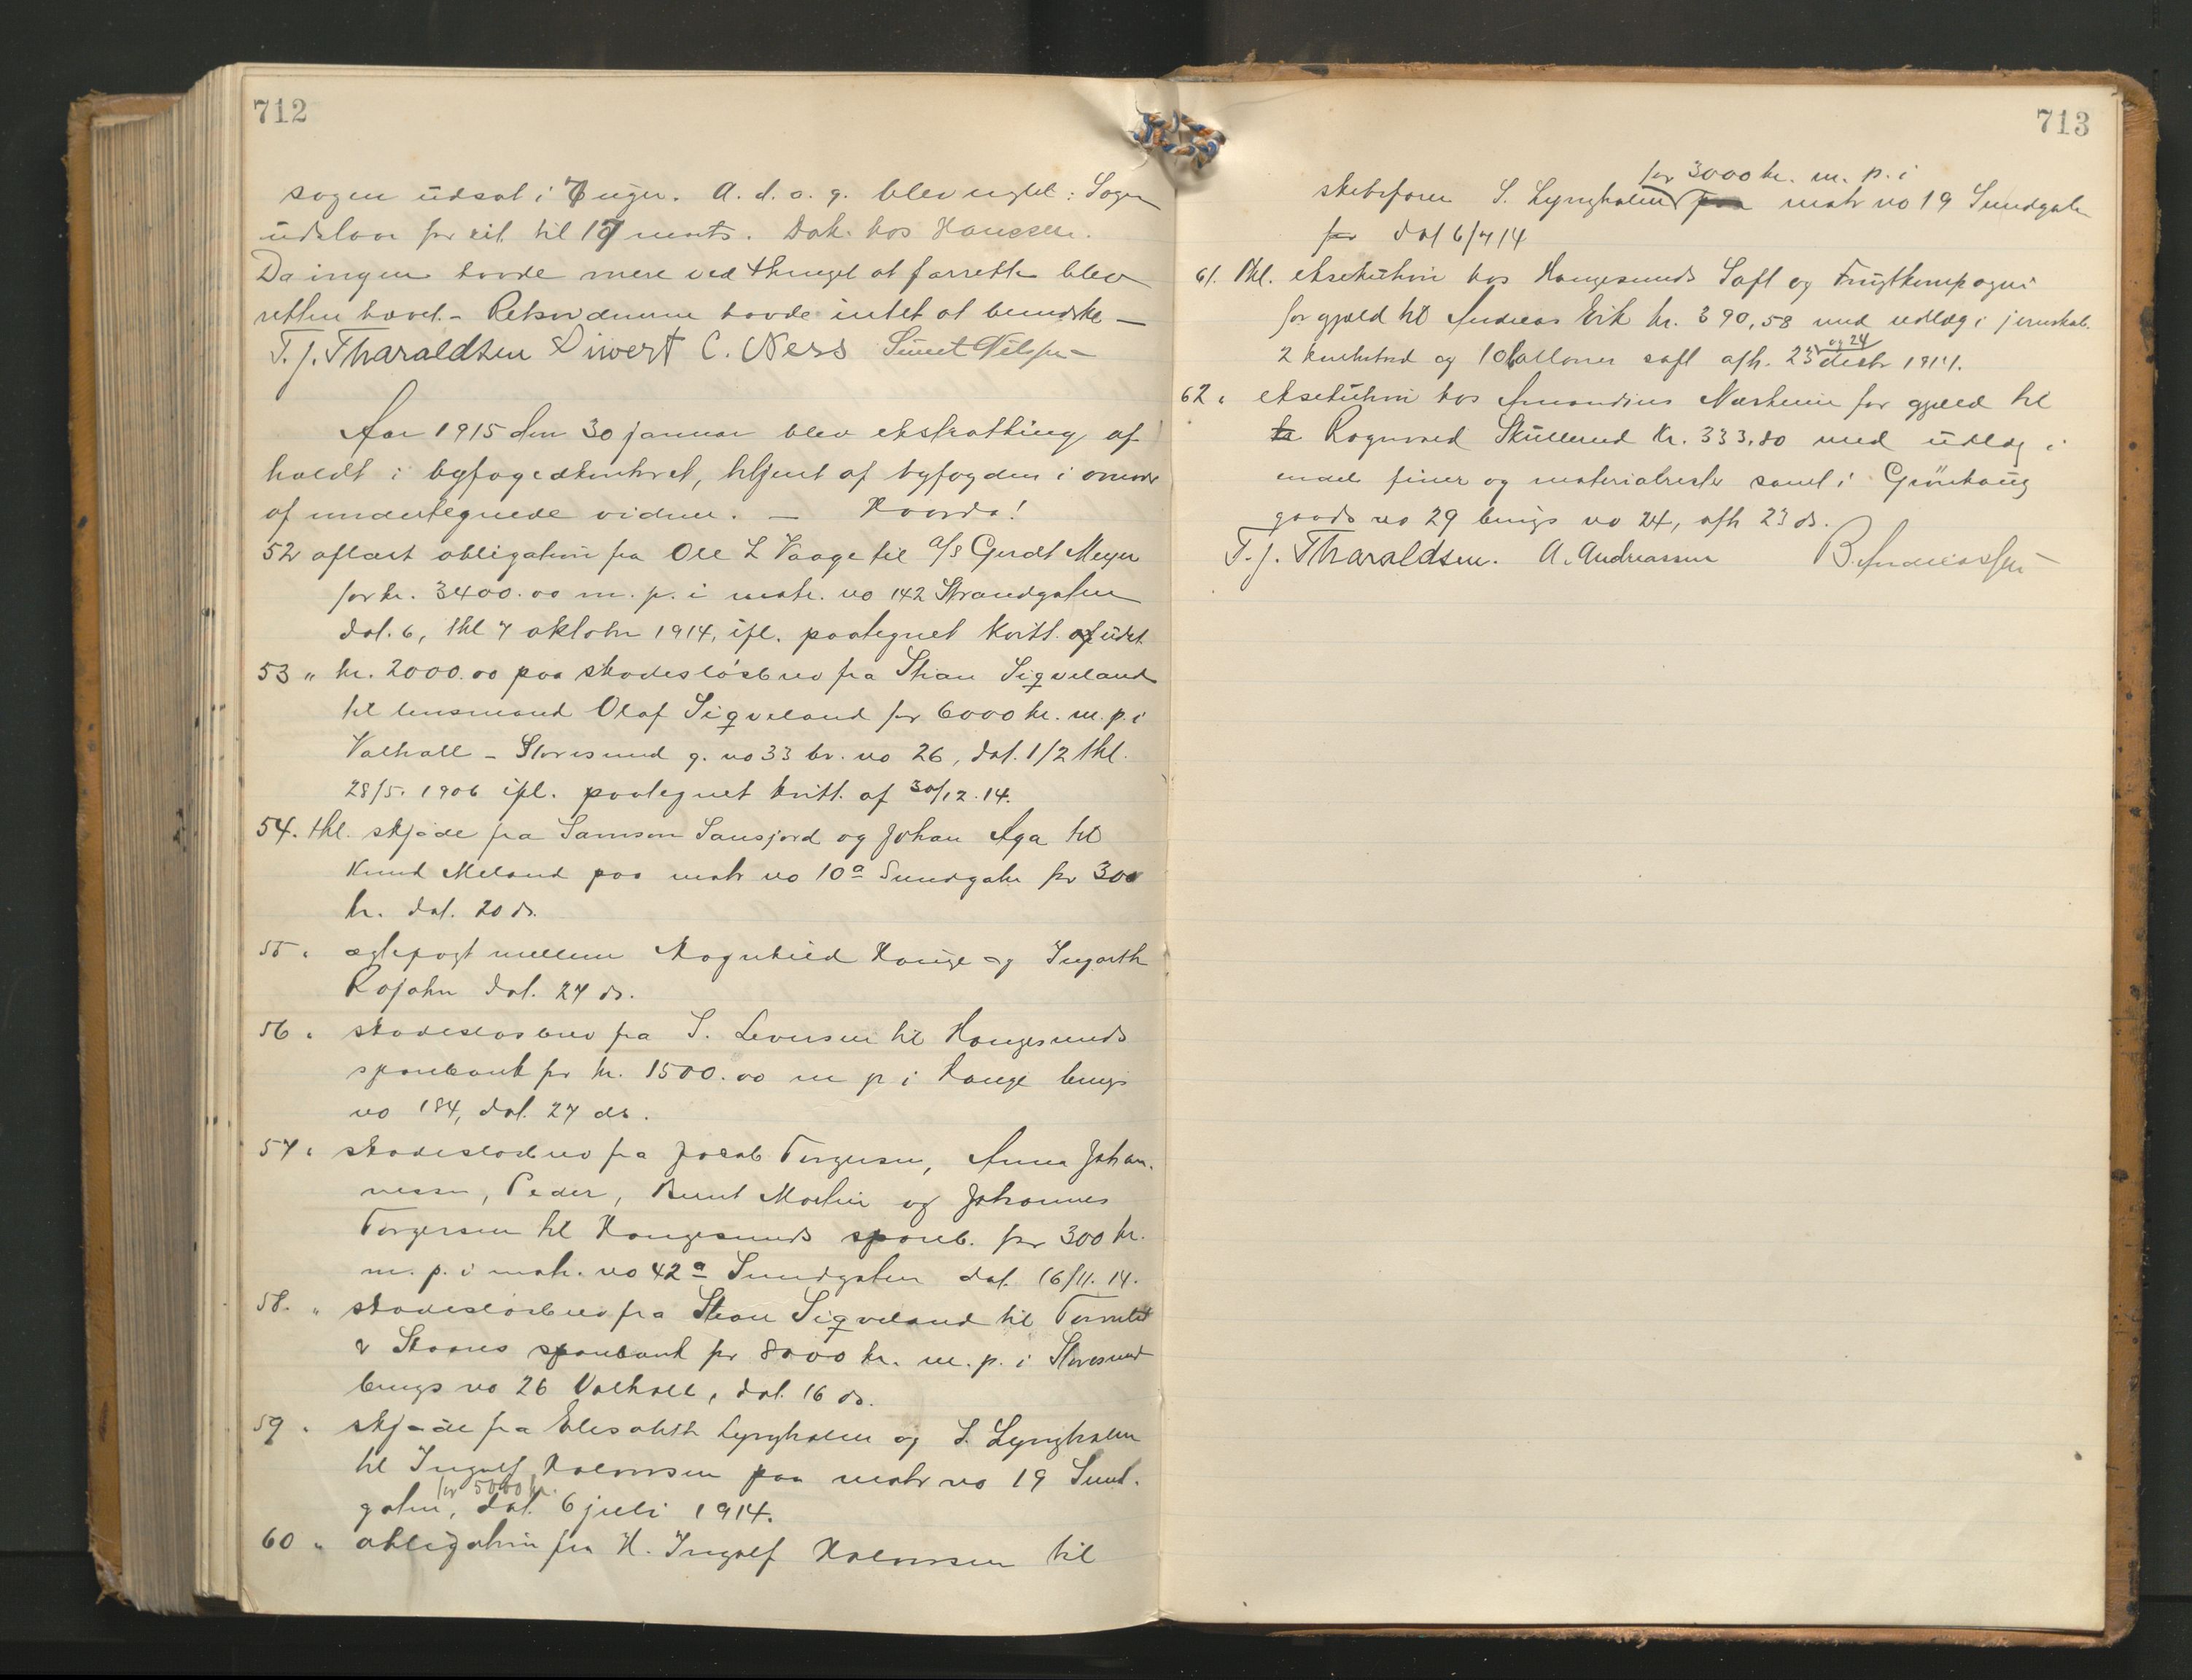 712
sagen udsat i 7 uger. A. d. o. g. blev negtet: Sagen
udstaar for eit. til 17 marts. Dok. hos Hanssen.
Da ingen havde mere ved thinget at forrette blev
retten hævet. - Retsvidnerne havde intet at bemerke —
T. J. Tharaldsen Sivert C. Ness
Aar 1915 den 30 januar blev ekstratting af
holdt i byfogedkontoret, betjent af byfogden i overvær
af undertegnede vidner. — Hvorda!
52 aflæst obligation fra Ole L Vaage til A/S Gerdt Meyer
for kr. 3400.00 m. p. i matr. no 142 Strandgaten
dat. 6, thl 7 oktobr 1914, ifl. paategnet kvitt. af udst.
53 " kr. 2000.00 paa skadesløsbrev fra Stian Siqveland
til lensmand Olaf Siqveland for 6000 kr. m. p. i
Valhall - Storesund g. no 33 br. no 26, dat. 1/2 thl.
28/5. 1906 ifl. paategnet kvitt. af 30/12.14.
54. thl. skjøde fra Samson Sansjord og Johan Aga til
Knud Meland paa matr no 10a Sundgaten for 300
kr. dat. 20 ds.
55 " ægtepagt mellem Ragnhild Hauge og Ingarth
Rojahn dat. 27 ds.
56 " skadesløsbrev fra S. Leversen til Haugesunds
sparebank for kr. 1500.00 m p i Hauge brugs
no 184, dat. 27 ds.
57 " skadesløsbrev fra Jacob Torgersen, Anna Johan-
nessen, Peder, Bernt Martin og Johannes
Torgersen til Haugesunds spareb. for 300 kr.
m. p. i matr. no 42a Sundgaten dat. 16/11.14.
58. " skadesløsbrev fra Stian Siqveland til Torvestad
& Skaares sparebank for 8000 kr. m. p. i Storesund
brugs no 26 Valhall, dat. 16 ds.
59 " skjøde fra Elisabeth Lyngholm og S. Lyngholm
til Ingolf Halvorsen paa matr no 19 Sund-
gaten, for 5000 kr. dat. 6 juli 1914.
60 " obligation fra H. Ingolf Halvorsen til
713
skibsfører S. Lyngholm for 3000 kr. m. p. i matr no 19 Sundgaten
dat 6/7 14
61. thl. eksekution hos Haugesunds Saft og Frugtkompagni
for gjæld til Andreas Eik kr. 390,58 med udlæg i jernskab.
2 og 10 balloner saft afh. 23 og 24 desbr 1914.
62 " eksekution hos Amandius Nærheim for gjæld til
Ragnvald Skullerud kr. 333.80 med udlæg i
endel finer og materialrester samt i Grønhaug
gaards no 29 brugs no 24, afh 23 ds.
T. J. Tharaldsen. A. Andreassen B. Andreassen